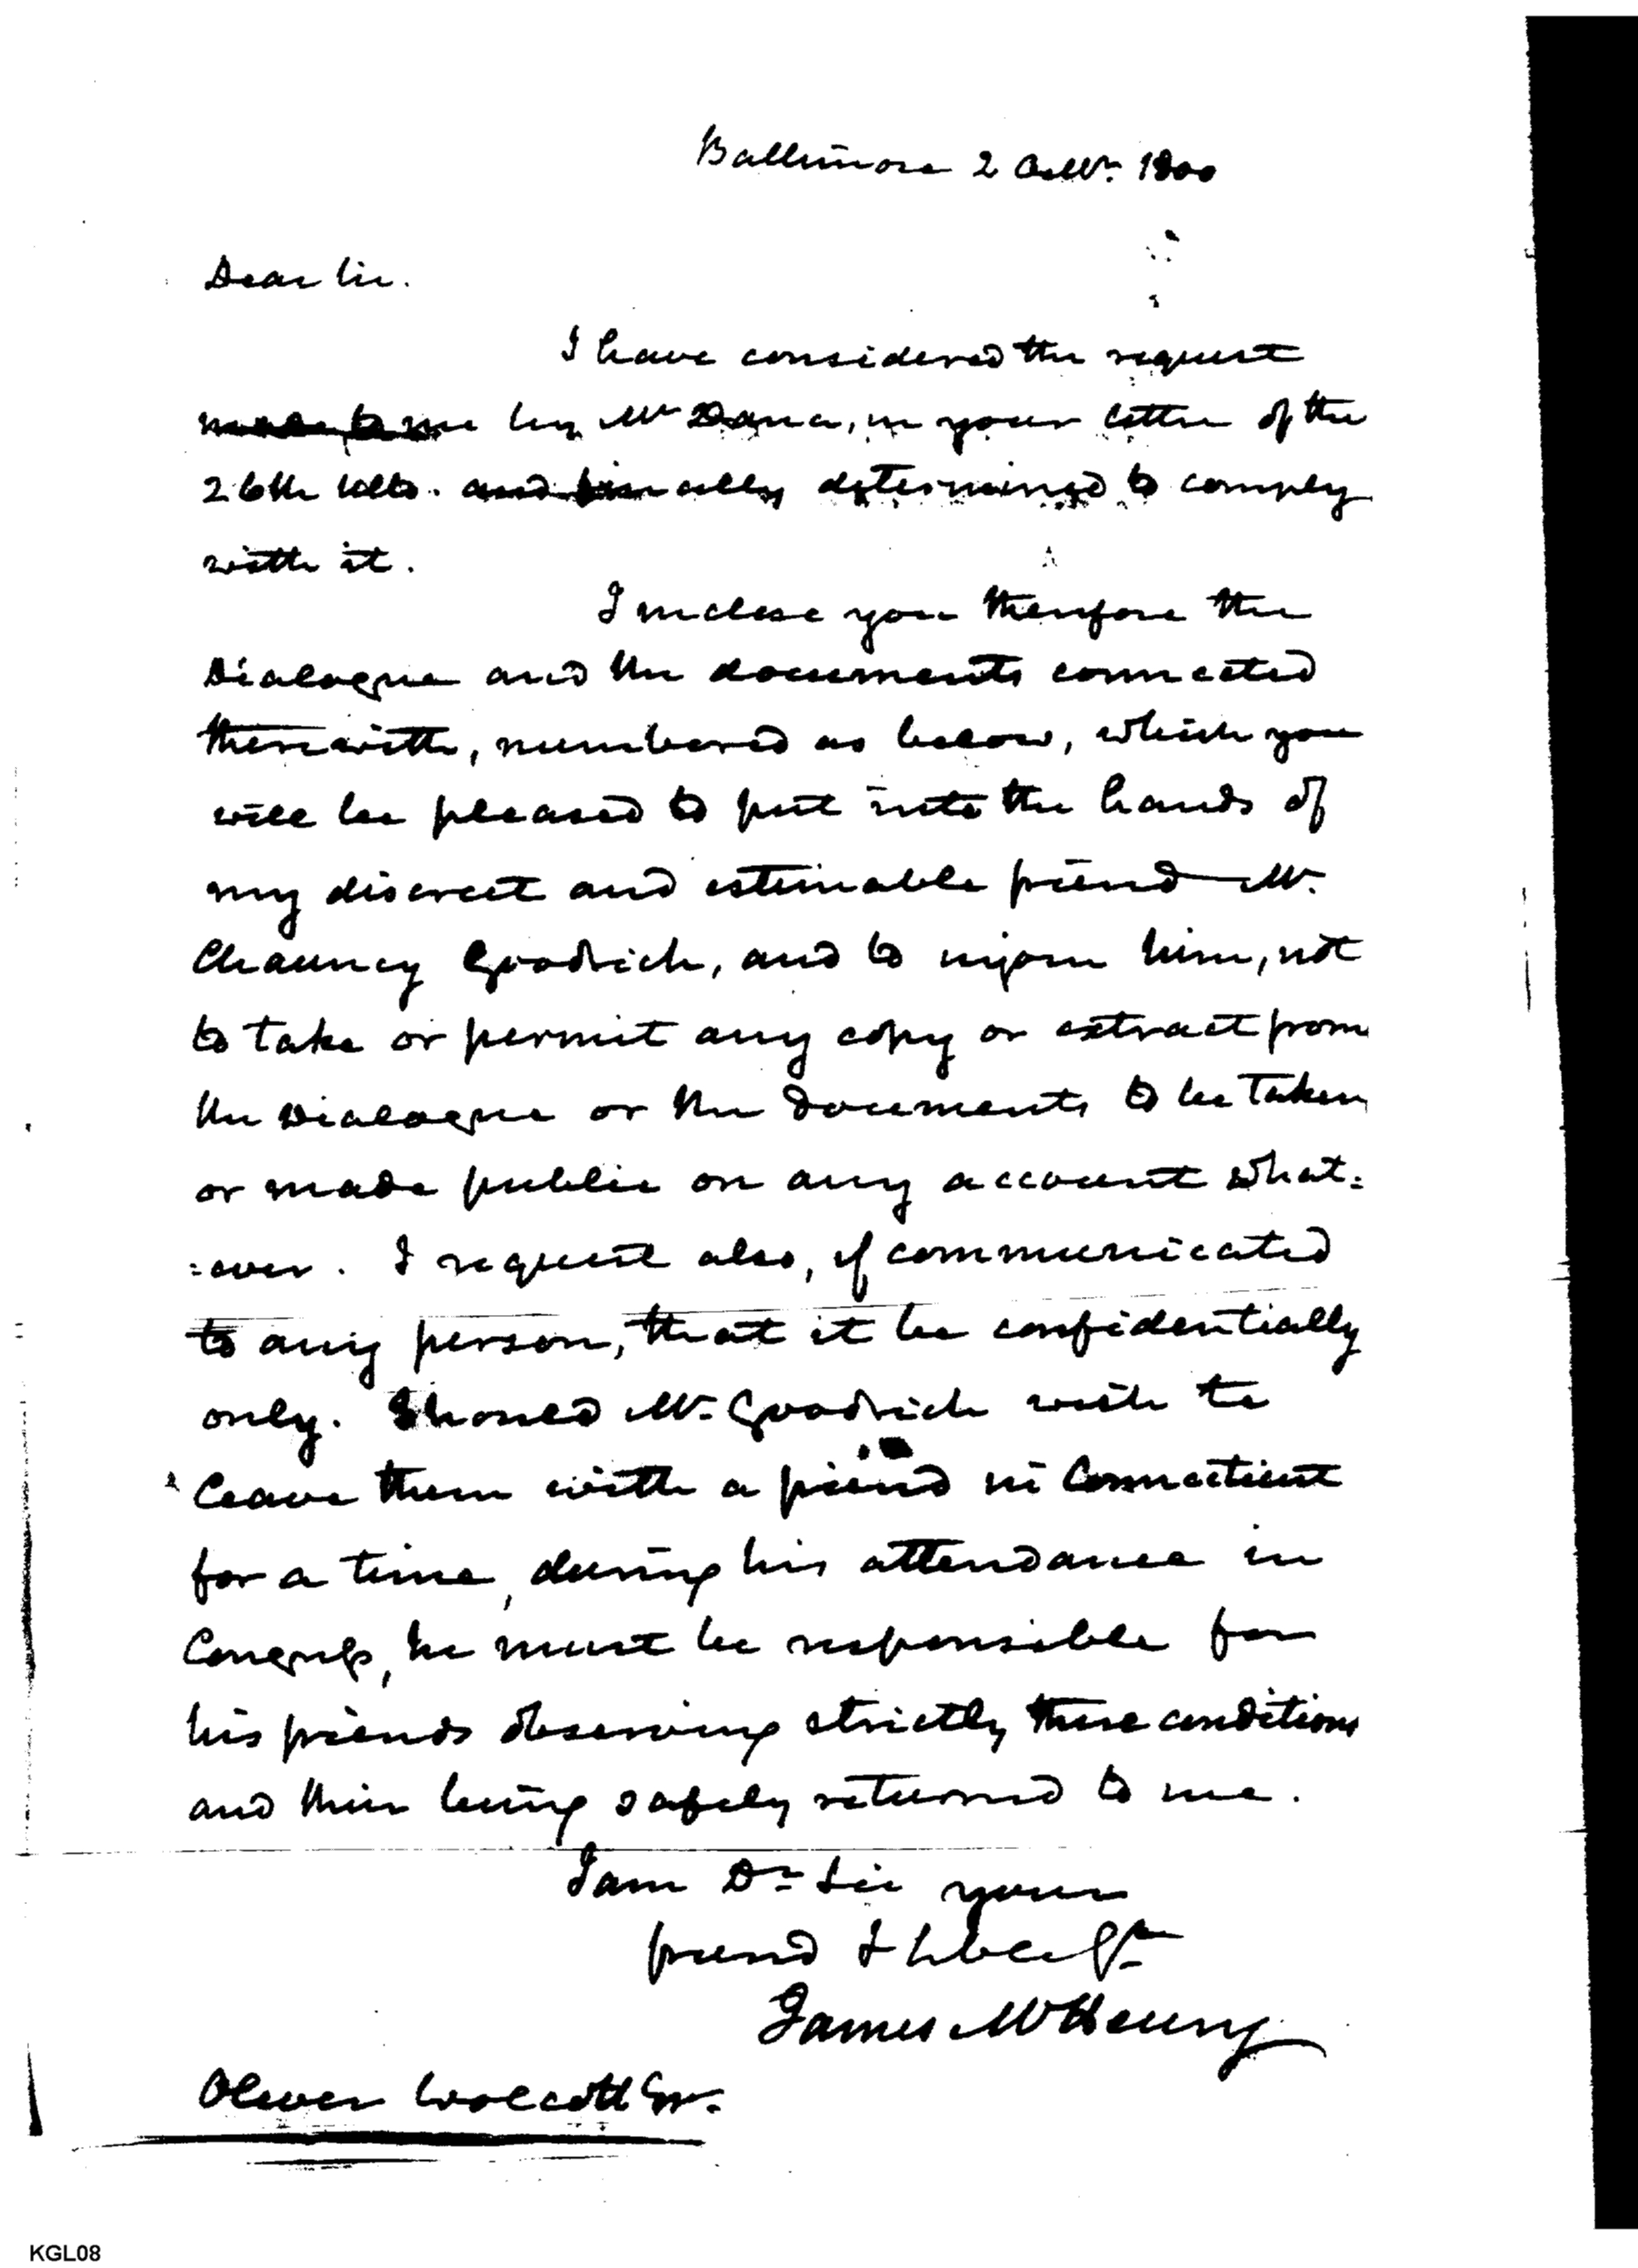 Baltimore 2 Octbr. 1800
Dear Sir.
I have considered the request
made to me by Mr Dana, in your letter of the
26th Ulto. and finally determined to comply
with it.
I inclose you therefore the
Dialogue and the documents connected
therewith, numbered as below, which you
will be pleased to put into the hands of
my discreet and estimable friend Mr.
Chauncy Goodrich, and to injoin him, not
to take or permit any copy or extract from
the Dialogue or the documents to be taken
or made public on any account what=
=ever. I request also, if communicated
to any person, that it be confidentially
only. Should Mr. Goodrich wish to
leave them with a friend in Connecticut
for a time, during his attendance in
Congress, he must be responsible for
his friends observing strictly these conditions
and their being safely returned to me.
I am Dr. Sir your
friend & hble St
James McHenry
Oliver Wolcott Esqr.
KGL08